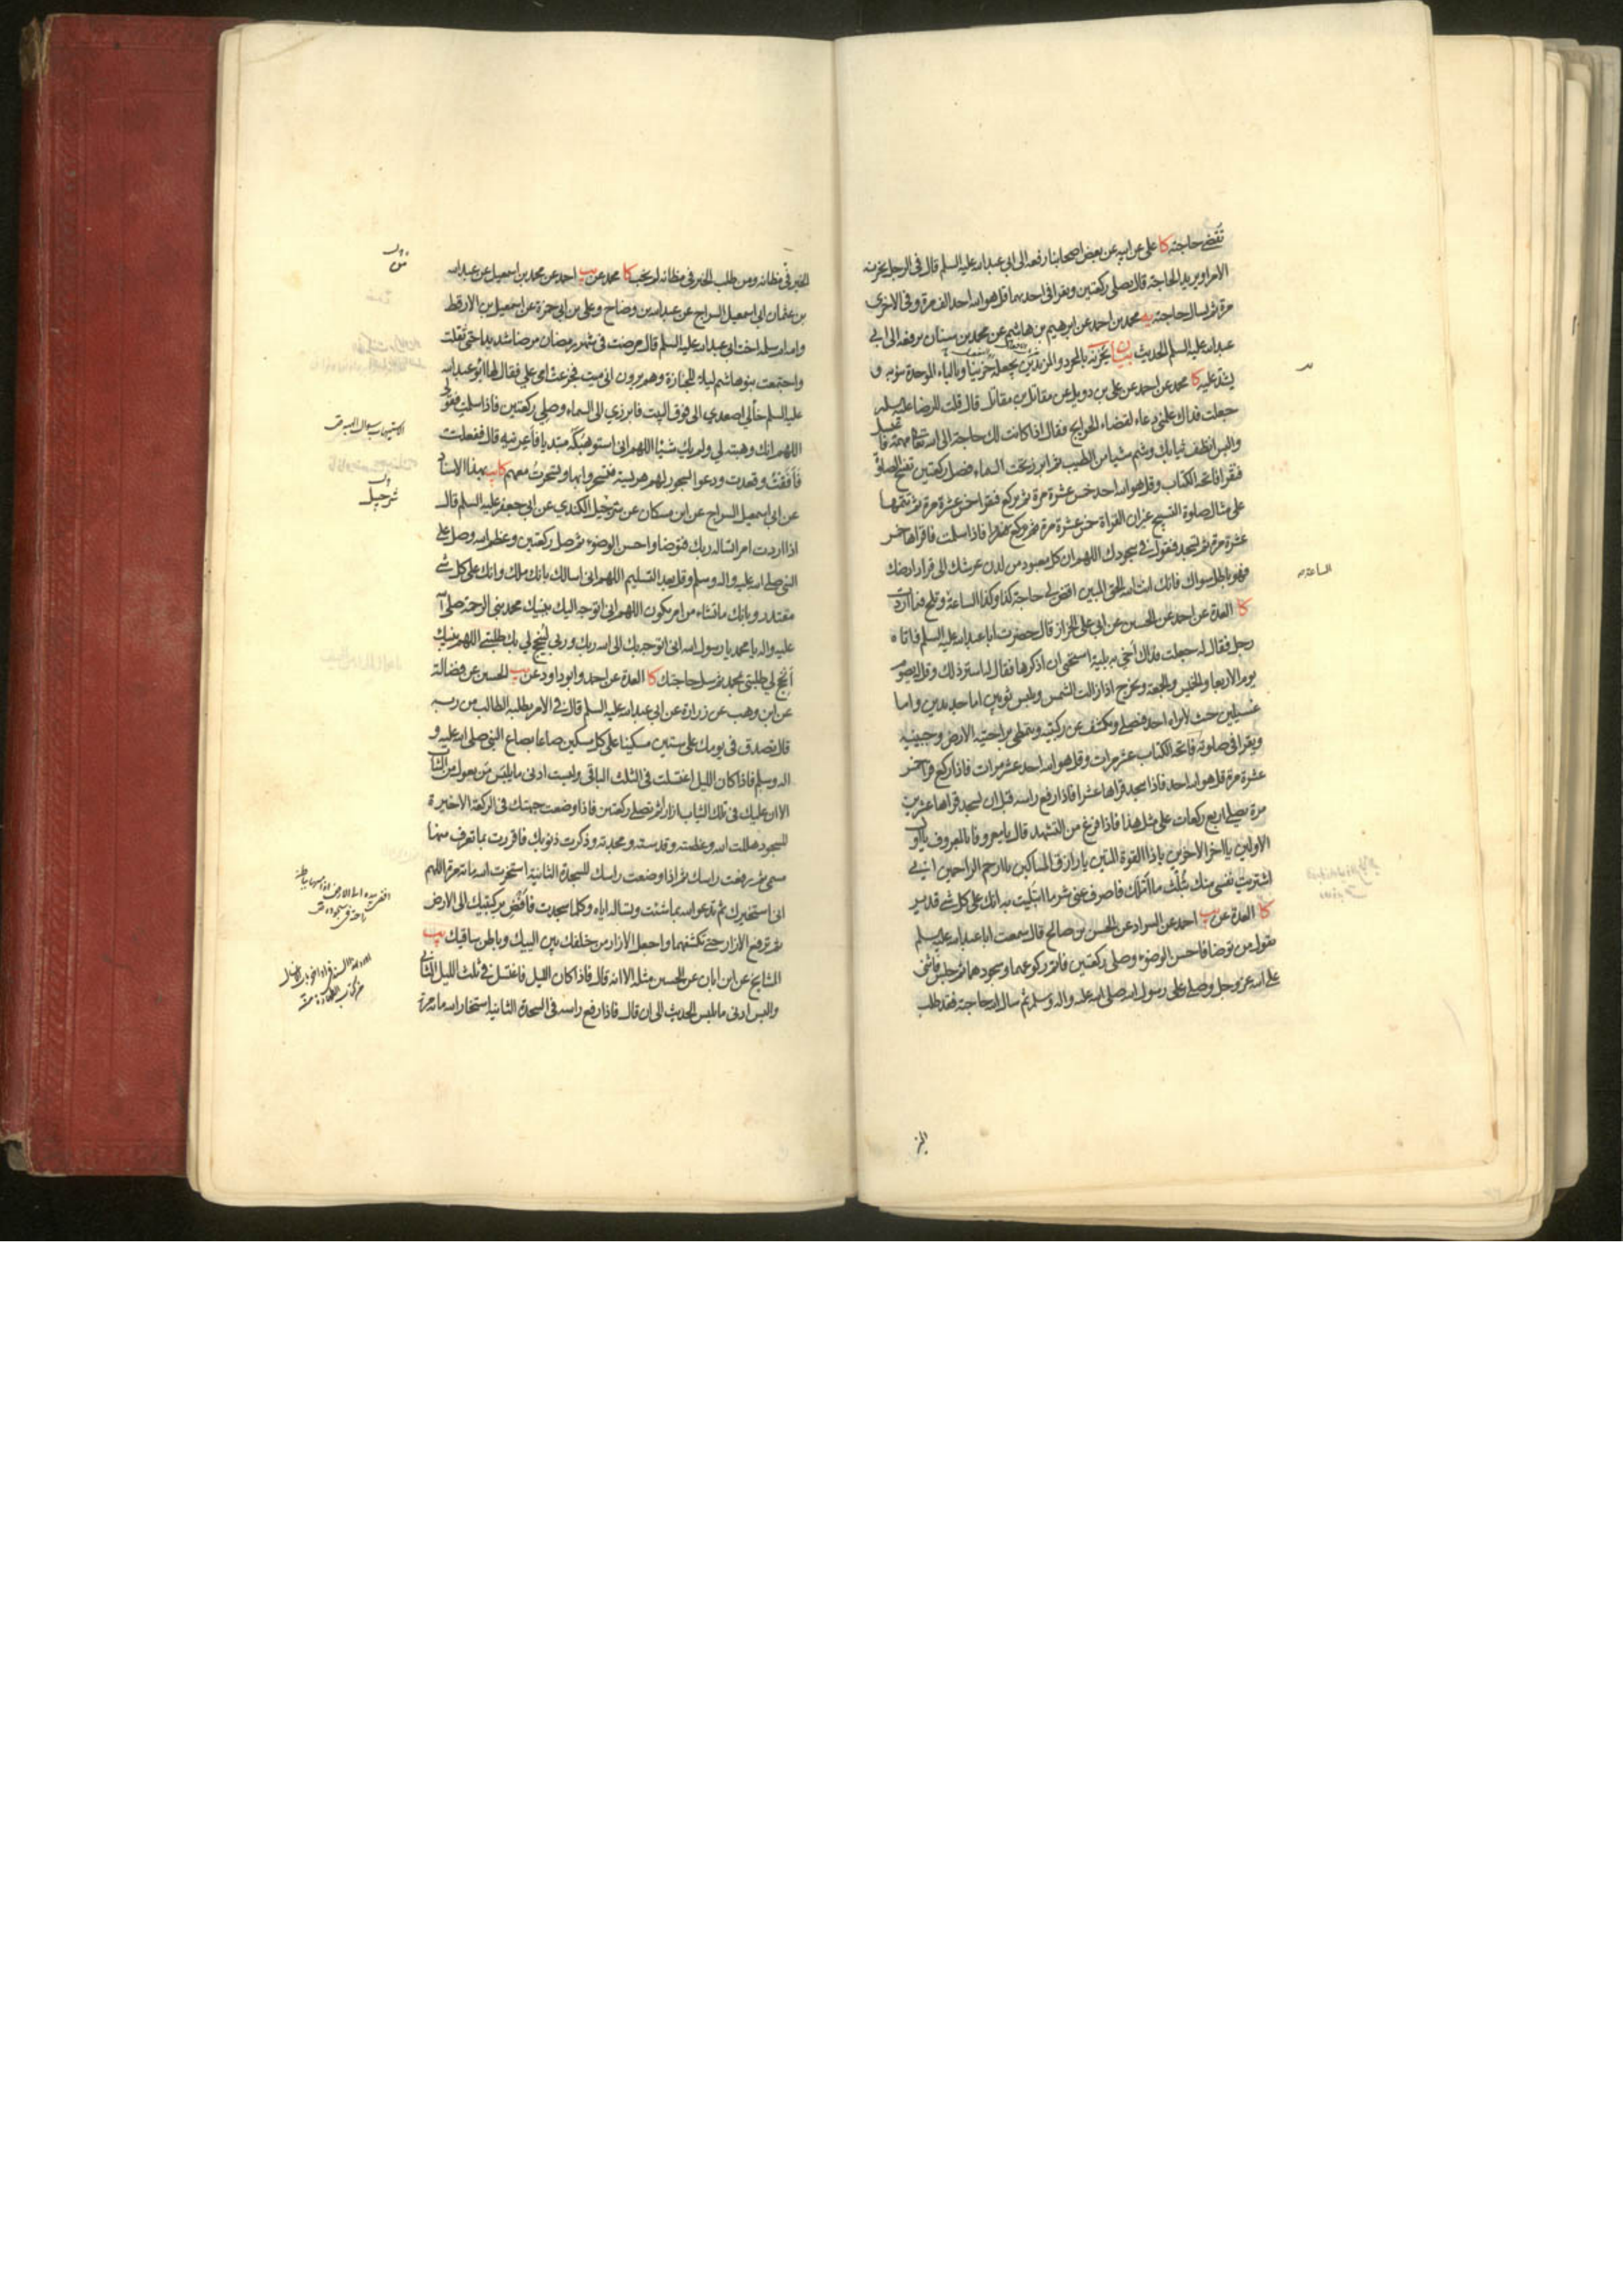 تقضى حاجته كا علي عن ابيه عن بعض اصحابنا رفعه الى ابي عبدالله عليه السلم قال في الرجل يحزنه
الامر او يريد الحاجة قال يصلي ركعتين ويقرا في احديهما قل هو الله احد الف مرة وفي الاخرى
مرة ثم يسال حاجته يه محمد بن احمد عن ابرهيم بن هاشم عن محمد بن سنان يرفعه الى ابي
عبدالله عليه السلم الحديث بيان يحزنه بالمجرد والمزيدين يجعله حزينا وبالباء الموحدة ينوبه و
يشتد عليه كا محمد عن احمد عن علي بن دويل عن مقاتل بن مقاتل قال قلت للرضا عليه السلم
جعلت فداك علمني دعاء لقضاء الحوايج فقال اذا كانت لك حاجة الى الله تعالى مهمة فاغتسل
والبس انظف ثيابك وشم شيا من الطيب ثم ابرز تحت السماء فصل ركعتين تفتتح الصلوة
فتقرا فاتحة الكتاب وقل هو الله احد خمس عشرة مرة ثم تركع فتقرا خمس عشرة مرة ثم تتمها
على مثال صلوة التسبيح غير ان القراة خمس عشرة مرة فاذا سلمت فاقراها خمس
عشرة مرة ثم تسجد فتقول في سجودك اللهم ان كل معبود من لدن عرشك الى قرار ارضك
فهو باطل سواك فانك انت الله الحق المبين اقض لي حاجة كذا وكذا الساعة وتلح فيما اردت
كا العدة عن احمد عن الحسين عن ابي علي الخزاز قال حضرت ابا عبدالله عليه السلم فاتاه
رجل فقال له جعلت فداك اخي به بلية استحيي ان اذكرها فقال له استر ذلك وقل له يصوم
يوم الاربعا والخميس والجمعة ويخرج اذا زالت الشمس ويلبس ثوبين اما جديدين واما
غسيلين حيث لا يراه احد فيصلي ويكشف عن ركبتيه ويتمطى براحتيه الارض وجبينيه
ويقرا في صلوته فاتحة الكتاب عشر مرات وقل هو الله احد عشر مرات فاذا ركع قرا خمس
عشرة مرة قل هو الله احد فاذا سجد قراها عشرا فاذا رفع راسه قبل ان يسجد قراها عشرين
مرة يصلي اربع ركعات على مثل هذا فاذا فرغ من التشهد قال يا معروفا بالمعروف يا اول
الاولين يا اخر الاخرين يا ذا القوة المتين يا رازق المساكين يا ارحم الراحمين اني
اشتريت نفسي منك بثلث ما املك فاصرف عني شر ما ابتليت به انك على كل شي قدير
كا العدة عن يب احمد عن السراد عن الحسن بن صالح قال سمعت ابا عبدالله عليه السلم
يقول من توضا فاحسن الوضوء وصلى ركعتين فاتم ركوعهما وسجودهما ثم جلس فاثنى
على الله عز وجل وصلى على رسول الله صلى الله عليه واله وسلم ثم سال الله حاجته فقد طلب
الساعة
الخير
الخير في مظانه ومن طلب الخير في مظانه لم يخب كا محمد عن يب احمد عن محمد بن اسمعيل عن عبدالله
بن عثمان ابي اسمعيل السراج عن عبدالله بن وضاح وعلي بن ابي حمزة عن اسمعيل بن الارقط
وامه ام سلمة اخت ابي عبدالله عليه السلم قال مرضت في شهر رمضان مرضا شديدا حتى ثقلت
واجتمعت بنو هاشم ليلا للجنازة وهم يرون اني ميت فجزعت امي علي فقال لها ابو عبدالله
عليه السلم خالي اصعدي الى فوق البيت فابرزي الى السماء وصلي ركعتين فاذا سلمت فقولي
اللهم انك وهبته لي ولم يك شيئا اللهم اني استوهبكه مبتديا فاعرنيه قال ففعلت
فافقت وقعدت ودعوا بسحور لهم هريسة فتسحروا بها وتسحرت معهم كا يب بهذا الاسناد
عن ابي اسمعيل السراج عن ابن مسكان عن شرحبيل الكندي عن ابي جعفر عليه السلم قال
اذا اردت امرا تساله ربك فتوضا واحسن الوضوء ثم صل ركعتين وعظم الله وصل على
النبي صلى الله عليه واله وسلم وقل بعد التسليم اللهم اني اسالك بانك ملك وانك على كل شي
مقتدر وبانك ما تشاء من امر يكون اللهم اني اتوجه اليك بنبيك محمد نبي الرحمة صلى الله
عليه واله يا محمد يا رسول الله اني اتوجه بك الى الله ربك وربي لينجح لي بك طلبتي اللهم بنبيك
انجح لي طلبتي بمحمد ثم سل حاجتك كا العدة عن احمد وابو داود عن يب الحسين عن فضالة
عن ابن وهب عن زرارة عن ابي عبدالله عليه السلم قال في الامر يطلبه الطالب من ربه
قال تصدق في يومك على ستين مسكينا على كل مسكين صاعا بصاع النبي صلى الله عليه و
اله وسلم فاذا كان الليل اغتسلت في الثلث الباقي ولبست ادنى ما يلبس من تعول من الثياب
الا ان عليك في تلك الثياب ازارا ثم تصلي ركعتين فاذا وضعت جبهتك في الركعة الاخيرة
للسجود هللت الله وعظمته وقدسته ومجدته وذكرت ذنوبك فاقررت بما تعرف منها
مسمى ثم رفعت راسك ثم اذا وضعت راسك للسجدة الثانية استخرت الله مائة مرة اللهم
اني استخيرك ثم تدعو الله بما شئت وتساله اياه وكلما سجدت فافض بركبتيك الى الارض
ثم ترفع الازار حتى تكشفهما واجعل الازار من خلفك بين اليتيك وباطن ساقيك يب
المشايخ عن ابن ابان عن الحسين مثله الا انه قال فاذا كان الليل فاغتسل في ثلث الليل الثاني
والبس ادنى ما يلبس الحديث الى ان قال فاذا رفع راسه في السجدة الثانية استخار الله مائة مرة
شرحبيل